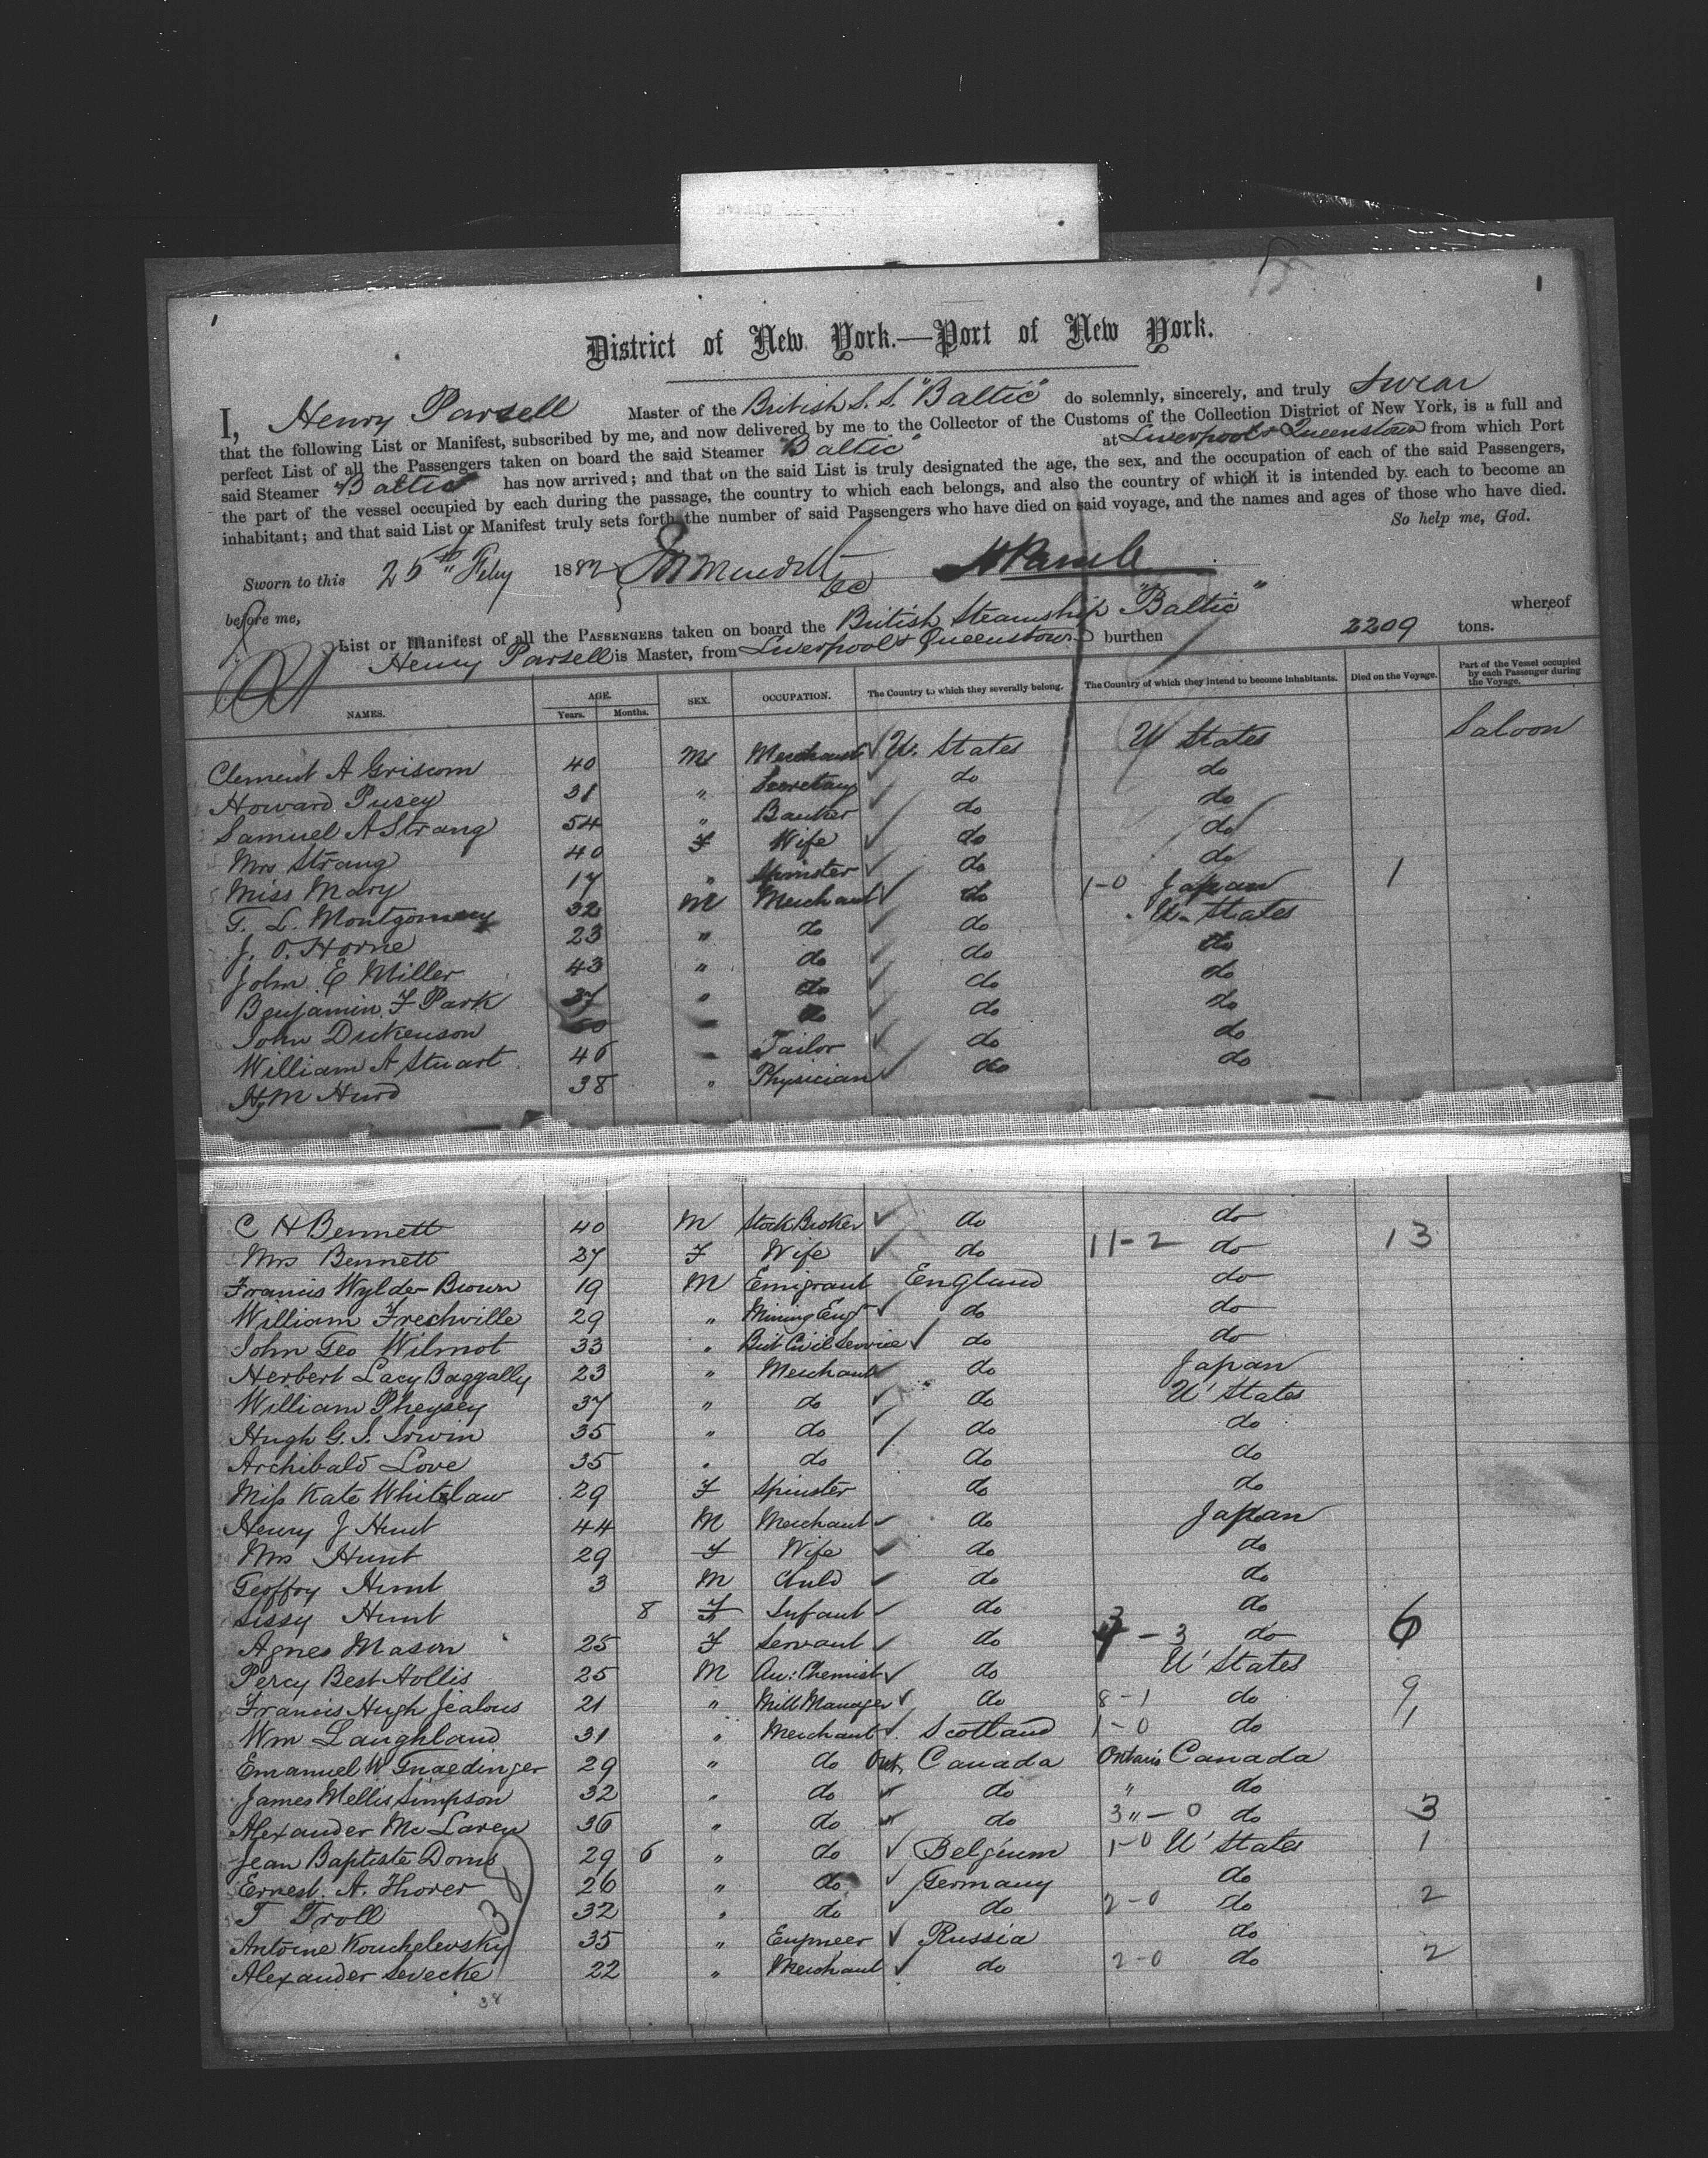 1 1
District of New York.—Port of New York.
I, Henry Parsell Master of the British S.S. "Baltic" do solemnly, sincerely, and truly swear
that the following List or Manifest, subscribed by me, and now delivered by me to the Collector of the Customs of the Collection District of New York, is a full and
perfect List of all the Passengers taken on board the said Steamer "Baltic" at Liverpool & Queenstown from which Port
said Steamer "Baltic" has now arrived; and that on the said List is truly designated the age, the sex, and the occupation of each of the said Passengers,
the part of the vessel occupied by each during the passage, the country to which each belongs, and also the country of which it is intended by each to become an
inhabitant; and that said List or Manifest truly sets forth the number of said Passengers who have died on said voyage, and the names and ages of those who have died.
So help me, God.
Sworn to this 25th Feby 1882
before me,
List or Manifest of all the PASSENGERS taken on board the British Steamship "Baltic" whereof
Henry Parsell is Master, from Liverpool & Queenstown burthen 2209 tons.
NAMES. AGE. Years. Months. SEX. OCCUPATION. The Country to which they severally belong. The Country of which they intend to become inhabitants. Died on the Voyage. Part of the Vessel occupied by each Passenger during the Voyage.
Clement A Griscom 40 M Merchant U. States U States Saloon
Howard Pusey 31 " Secretary do do
Samuel A Strang 54 " Banker do do
Mrs Strang 40 F Wife do do
Miss Mary 17 " Spinster do do
T. L. Montgomery 32 M Merchant do 1-0 Japan 1
J. O. Horne 23 " do do U. States
John E Miller 43 " do do do
Benjamin F Park 37 " do do do
John Dickenson do do do
William A Stuart 46 Tailor do do
Hy M Hurd 38 " Physician do do
C H Bennett 40 M Stock Broker do do
Mrs Bennett 27 F Wife do 11-2 do 13
Francis Wylde Brown 19 M Emigrant England do
William Frechville 29 " Mining Engr do do
John Geo Wilmot 33 " Brit Civil Service do do
Herbert Lacy Baggally 23 " Merchant do Japan
William Pheysey 37 " do do U States
Hugh G. S. Irwin 35 " do do do
Archibald Love 35 " do do do
Miss Kate Whitelaw 29 F Spinster do do
Henry J Hunt 44 M Merchant do Japan
Mrs Hunt 29 F Wife do do
Geoffry Hunt 3 M Child do do
Sissy Hunt 8 F Infant do do
Agnes Mason 25 F Servant do 3 do 6
Percy Best Hollis 25 M An: Chemist do U States
Francis Hugh Jealous 21 " Mill Manager do 8-1 do 9
Wm Laughland 31 " Merchant Scotland 1-0 do 1
Emanuel W Gnaedinger 29 " do Ont. Canada Ontario Canada
James Mellis Simpson 32 " do do " do
Alexander Mc Laren 36 " do do 3"-0 do 3
Jean Baptiste Doms 29 6 " do Belgium 1-0 U States 1
Ernest. A. Thorer 26 " do Germany do
T Troll 32 " do do 2-0 do 2
Antoine Kouchelevsky 35 " Engineer Russia do
Alexander Sevecke 22 " Merchant do 2-0 do 2
38